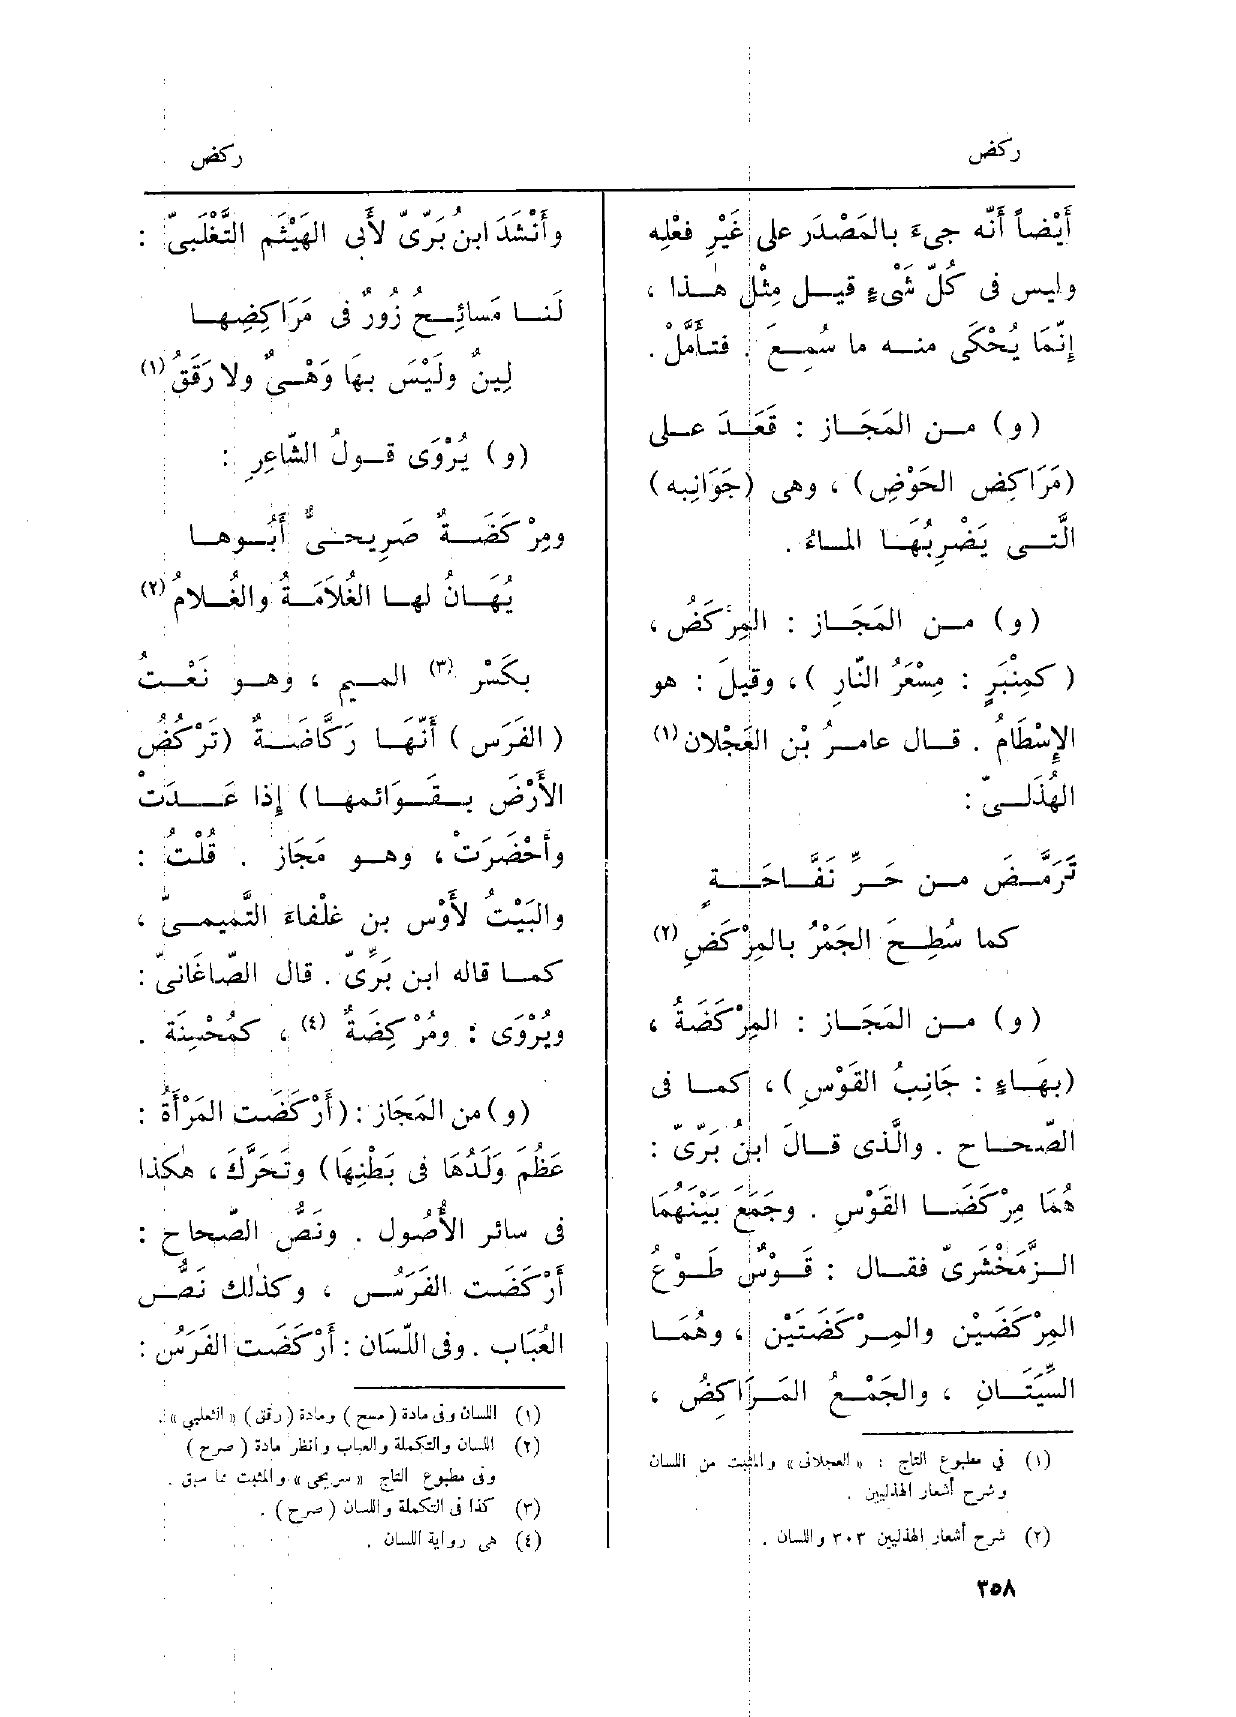 ركض
ركض
أَيْضاً أَنَّه جِىءَ بالمَصْدَر على غَيْرِ فعْلِه
وليس فى كُلّ شَىْءٍ قيـل مِثْلُ هـذا ،
إِنَّمَا يُحْكَى منـه ما سُمِـعَ . فتـأَمَّلْ .
(و) مـن المَجَـاز : قَعَـدَ عـلى
(مَرَاكِض الحَوْضِ) ، وهى (جَوَانِبه)
الَّتـى يَضْرِبُهَـا المـاءُ .
(و) مـن المَجَـاز : المِرْكَضُ ،
(كمِنْبَرٍ : مِسْعَرُ النّارِ ) ، وقيلَ : هو
الإِسْطَامُ . قـال عامـرُ بْن العَجْلان (١)
الهُذَلـىّ :
تَرَمَّـضَ مـن حَـرِّ نَفَّـاحَـةٍ
كما سُطِـحَ الجَمْرُ بالمِرْكَضِ (٢)
(و) مـن المَجَـاز : المِرْكَضَةُ ،
(بهَـاءٍ : جَانِبُ القَوْسِ) ، كمـا فى
الصّحـاح . والَّذى قـالَ ابنُ بَرّىّ :
هُمَا مِرْكَضَـا القَوْسِ . وجَمَعَ بَيْنَهُمَا
الـزَّمَخْشَرِىّ فقـال : قَـوْسٌ طَـوْعُ
المِرْكَضَيْنِ والمِـرْكَضَتَيْنِ ، وهُمَـا
السِّيَتَـانِ ، والجَمْـعُ المَـرَاكِضُ ،
(١) فى مطبوع التاج : « العجلانى » والمثبت من اللسان
وشرح أشعار الهذليين .
(٢) شرح أشعار الهذليين ٣٠٣ واللسان .
وأَنْشَدَ ابنُ بَرّىّ لأَبى الهَيْثَم التَّغْلَبىّ :
لَنـا مَسائِـحُ زُورٌ فى مَرَاكِضِهـا
لِينٌ ولَيْسَ بها وَهْـىٌ ولا رَقَقُ (١)
(و) يُرْوَى قـولُ الشّاعِرِ :
ومِرْكَضَـةٌ صَرِيحـىٌّ أَبُـوهـا
يُهَـانُ لهـا الغُلَامَـةُ والغُـلامُ (٢)
بكَسْر (٣) الميـم ، وهـو نَعْـتُ
(الفَرَس) أَنَّهَـا رَكَّاضَـةٌ (تَرْكُضُ
الأَرْضَ بـقـوَائمهـا) إِذا عَـدَتْ
وأَحْضَرَت ، وهـو مَجَاز . قُلْتُ :
والبَيْتُ لأَوْس بن غلْفاءَ التَّميمـىّ ،
كمـا قاله ابن بَرِّىّ . قال الصّاغَانىّ :
ويُرْوَى : ومُرْكِضَةٌ (٤) ، كمُحْسِنَة .
(و) من المَجَاز : (أَرْكَضَت المَرْأَةُ :
عَظُمَ وَلَدُهَا فى بَطْنِهَا) وتَحَرَّكَ ، هٰكذا
فى سائر الأُصُول . ونَصُّ الصّحاح :
أَرْكَضَت الفَرَسُ ، وكذٰلك نَصُّ
العُبَاب . وفى اللّسَان : أَرْكَضَت الفَرَسُ :
(١) اللسان وفى مادة (مسح) ومادة (رقق) « الثعلبي » .
(٢) اللسان والتكملة والعباب وانظر مادة (صرح)
وفى مطبوع التاج « سريحى » والمثبت مما سبق .
(٣) كذا فى التكملة واللسان (صرح) .
(٤) هى رواية اللسان .
٣٥٨